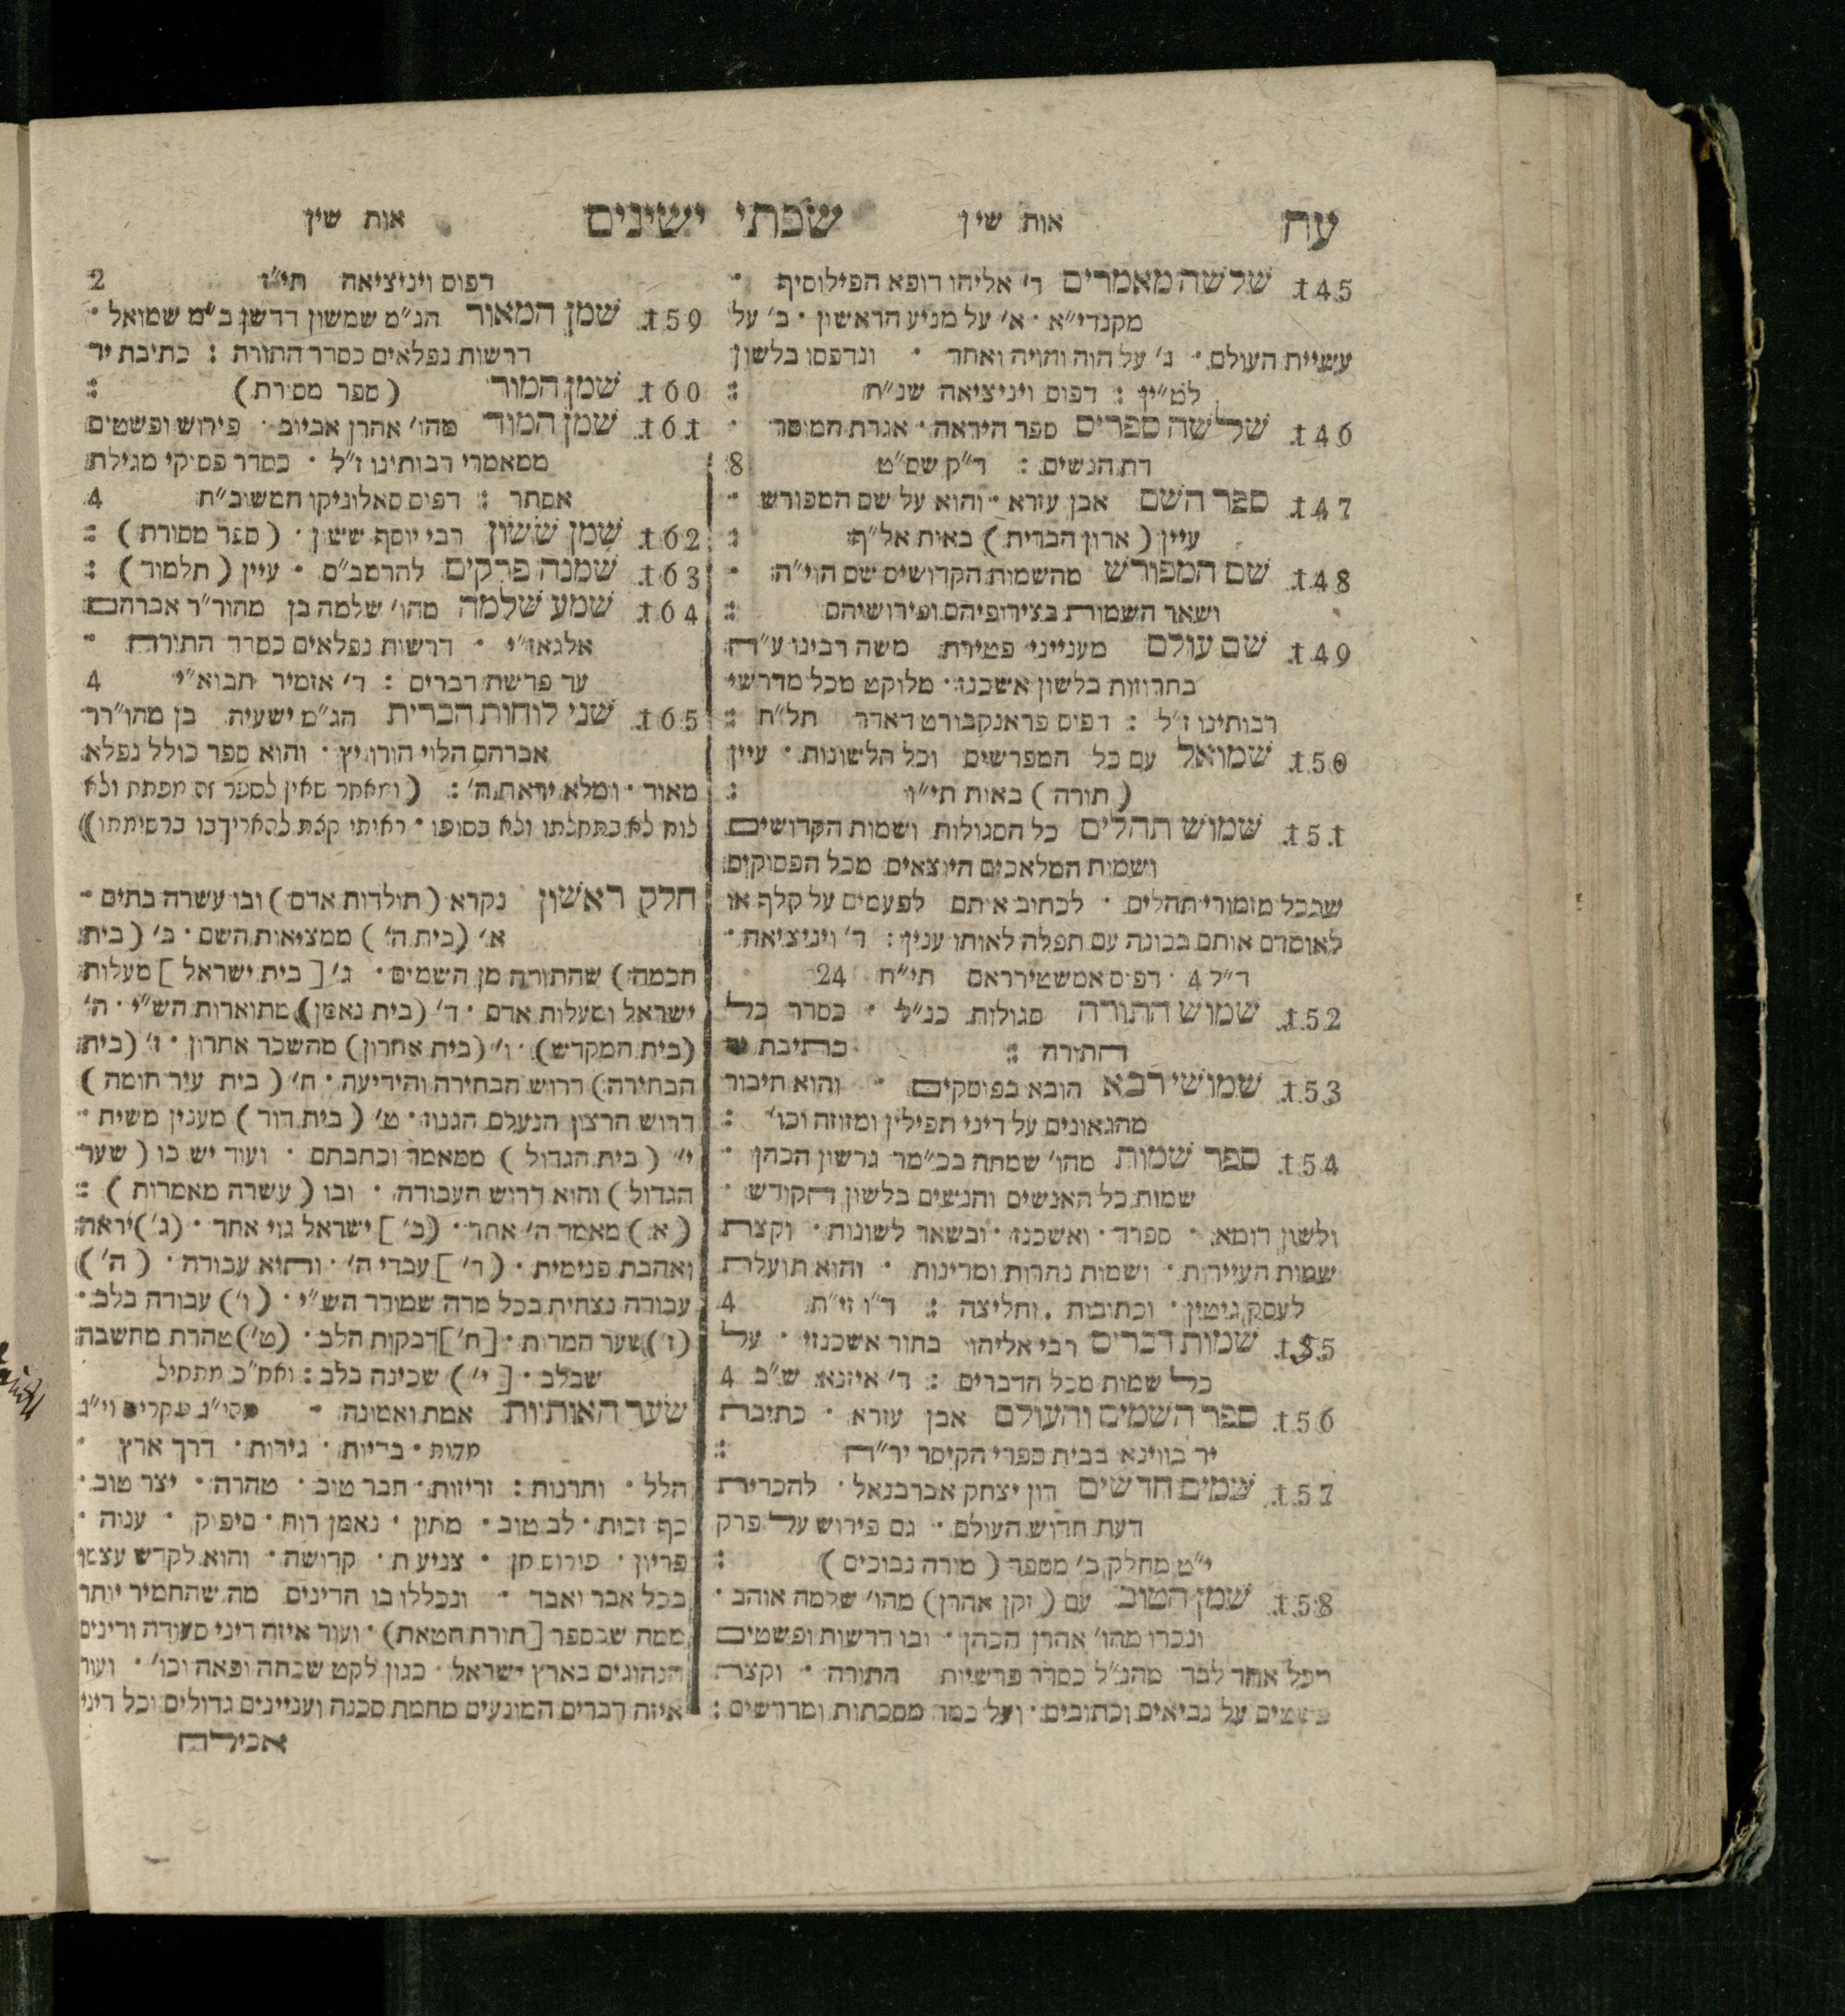 עח אות שין שפתי ישינים אות שין
145 שלשה מאמרים ר׳ אליהו רופא הפילוסוף ·
מקנדי״א · א׳ על מניע הראשון · ב׳ על
עשיית העולם · ג׳ על הוה והויה ואחד · ונדפסו בלשון
לט״ין : דפוס ויניציאה שנ״ח :
146 שלשה ספרים ספר היראה · אגרת המוסר ·
דת הנשים : ד״ק שס״ט 8
147 ספר השם אבן עזרא · והוא על שם המפורש ·
עיין ( ארון הברית ) באות אל״ף :
148 שם המפורש מהשמות הקדושים שם הוי״ה ·
ושאר השמות בצירופיהם ופירושיהם :
149 שם עולם מענייני פטירת משה רבינו ע״ה
בחרוזות בלשון אשכנז · מלוקט מכל מדרשי
רבותינו ז״ל : דפוס פראנקבורט דאדר תל״ח :
150 שמואל עם כל המפרשים וכל הלשונות · עיין
( תורה ) באות תי״ו :
151 שמוש תהלים כל הסגולות ושמות הקדושים
ושמות המלאכים היוצאים מכל הפסוקים
שבכל מזמורי תהלים · לכתוב איתם לפעמים על קלף או
לאומרם אותם בכונה עם תפלה לאותו ענין : ד׳ ויניציאה ·
ד״ל 4 · דפוס אמשטירדאם תי״ח 24
152 שמוש התורה סגולות כנ״ל · כסדר כל
התורה : כתיבת
153 שמושי רבא הובא בפוסקים · והוא חיבור
מהגאונים על דיני תפילין ומזוזה וכו׳ :
154 ספר שמות מהו׳ שמחה בכ״מר גרשון הכהן ·
שמות כל האנשים והנשים בלשון הקודש ·
ולשון רומא · ספרד · ואשכנז · ובשאר לשונות · וקצת
שמות העיירות · ושמות נהרות ומדינות · והוא תועלת
לעסק גיטין · וכתובות · וחליצה : ד״ו זי״ת 4
155 שמות דברים רבי אליהו בחור אשכנזי · על
כל שמות מכל הדברים : ד׳ איזנא ש״ב 4
156 ספר השמים והעולם אבן עזרא · כתיבת
יד בווינא בבית ספרי הקיסר יר״ה :
157 שמים חדשים דון יצחק אברבנאל · להכרית
דעת חדוש העולם · גם פירוש על פרק
י״ט מחלק ב׳ מספר ( מורה נבוכים ) :
158 שמן הטוב עם ( זקן אהרן ) מהו׳ שלמה אוהב ·
ונכדו מהו׳ אהרן הכהן · ובו דרשות ופשטים
מכל אחד לבד מהנ״ל כסדר פרשיות התורה · וקצת
פשטים על נביאים וכתובים · ועל כמה מסכתות ומדרשים :
דפוס ויניציאה תי״ז 2
159 שמן המאור הג״מ שמשון דרשן ב״מ שמואל ·
דרשות נפלאים כסדר התורה : כתיבת יד
160 שמן המור ( ספר מסורת ) :
161 שמן המור מהו׳ אהרן אביוב · פירוש ופשטים
ממאמרי רבותינו ז״ל · כסדר פסוקי מגילת
אסתר : דפוס סאלוניקו המשוב״ח 4
162 שמן ששון רבי יוסף ששון · ( ספר מסורת ) :
163 שמנה פרקים להרמב״ם · עיין ( תלמוד ) :
164 שמע שלמה מהו׳ שלמה בן מהור״ר אברהם
אלגאז״י · דרשות נפלאים כסדר התורה ·
עד פרשת דברים : ד׳ אזמיר תבוא״י 4
165 שני לוחות הברית הג״מ ישעיה בן מהו״רר
אברהם הלוי הורוויץ · והוא ספר כולל נפלא
מאוד · ומלא יראת ה׳ : ( ומאחר שאין לספר זה מפתח ולא
לוח לא בתחלתו ולא בסופו · ראיתי קצת להאריך בו ברשימתו )
חלק ראשון נקרא ( תולדות אדם ) ובו עשרה בתים ·
א׳ ( בית ה׳ ) ממציאות השם · ב׳ ( בית
חכמה ) שהתורה מן השמים · ג׳ [ בית ישראל ] מעלות
ישראל ומעלות אדם · ד׳ ( בית נאמן ) מתוארות הש״י · ה׳
( בית המקדש ) · ו׳ ( בית אחרון ) מהשכר אחרון · ז׳ ( בית
הבחירה ) דרוש הבחירה והידיעה · ח׳ ( בית עיר חומה )
דרוש הרצון הנעלם הגנוז · ט׳ ( בית דוד ) מענין משיח ·
י״ ( בית הגדול ) ממאמר וכתבתם · ועוד יש בו ( שער
הגדול ) והוא דרוש העבודה · ובו ( עשרה מאמרות ) :
( א ) מאמר ה׳ אחד · ( ב׳ ] ישראל גוי אחד · ( ג׳ ) יראה
ואהבה פנימית · ( ד׳ ] עבדי ה׳ · והיא עבודה · ( ה׳ )
עבודה נצחית בכל מדה שמודד הש״י · ( ו׳ ) עבודה בלב ·
( ז׳ ) שער המדות · [ ח׳ ] דבקות הלב · ( ט׳ ) טהרת מחשבה
שבלב · [ י׳ ) שכינה בלב : ואח״כ מתחיל
שער האותיות אמת ואמונה · עקרים וי״ג
מדות · בריות · גירות · דרך ארץ ·
הלל · ותרנות : זריזות · חבר טוב · טהרה · יצר טוב ·
כף זכות · לב טוב · מתון · נאמן רוח · סיפוק · ענוה ·
פריון · פורוס חן · צניעת · קדושה · והוא לקדש עצמו
בכל אבר ואבר · ונכללו בו הדינים מה שהחמיר יותר
ממה שבספר [ תורת חטאת ) · ועוד איזה דיני סעודה ודינים
הנהוגים בארץ ישראל · כגון לקט שכחה ופאה וכו׳ · ועוד
איזה דברים המונעים מחמת סכנה ועניינים גדולים וכל דיני
אכילה